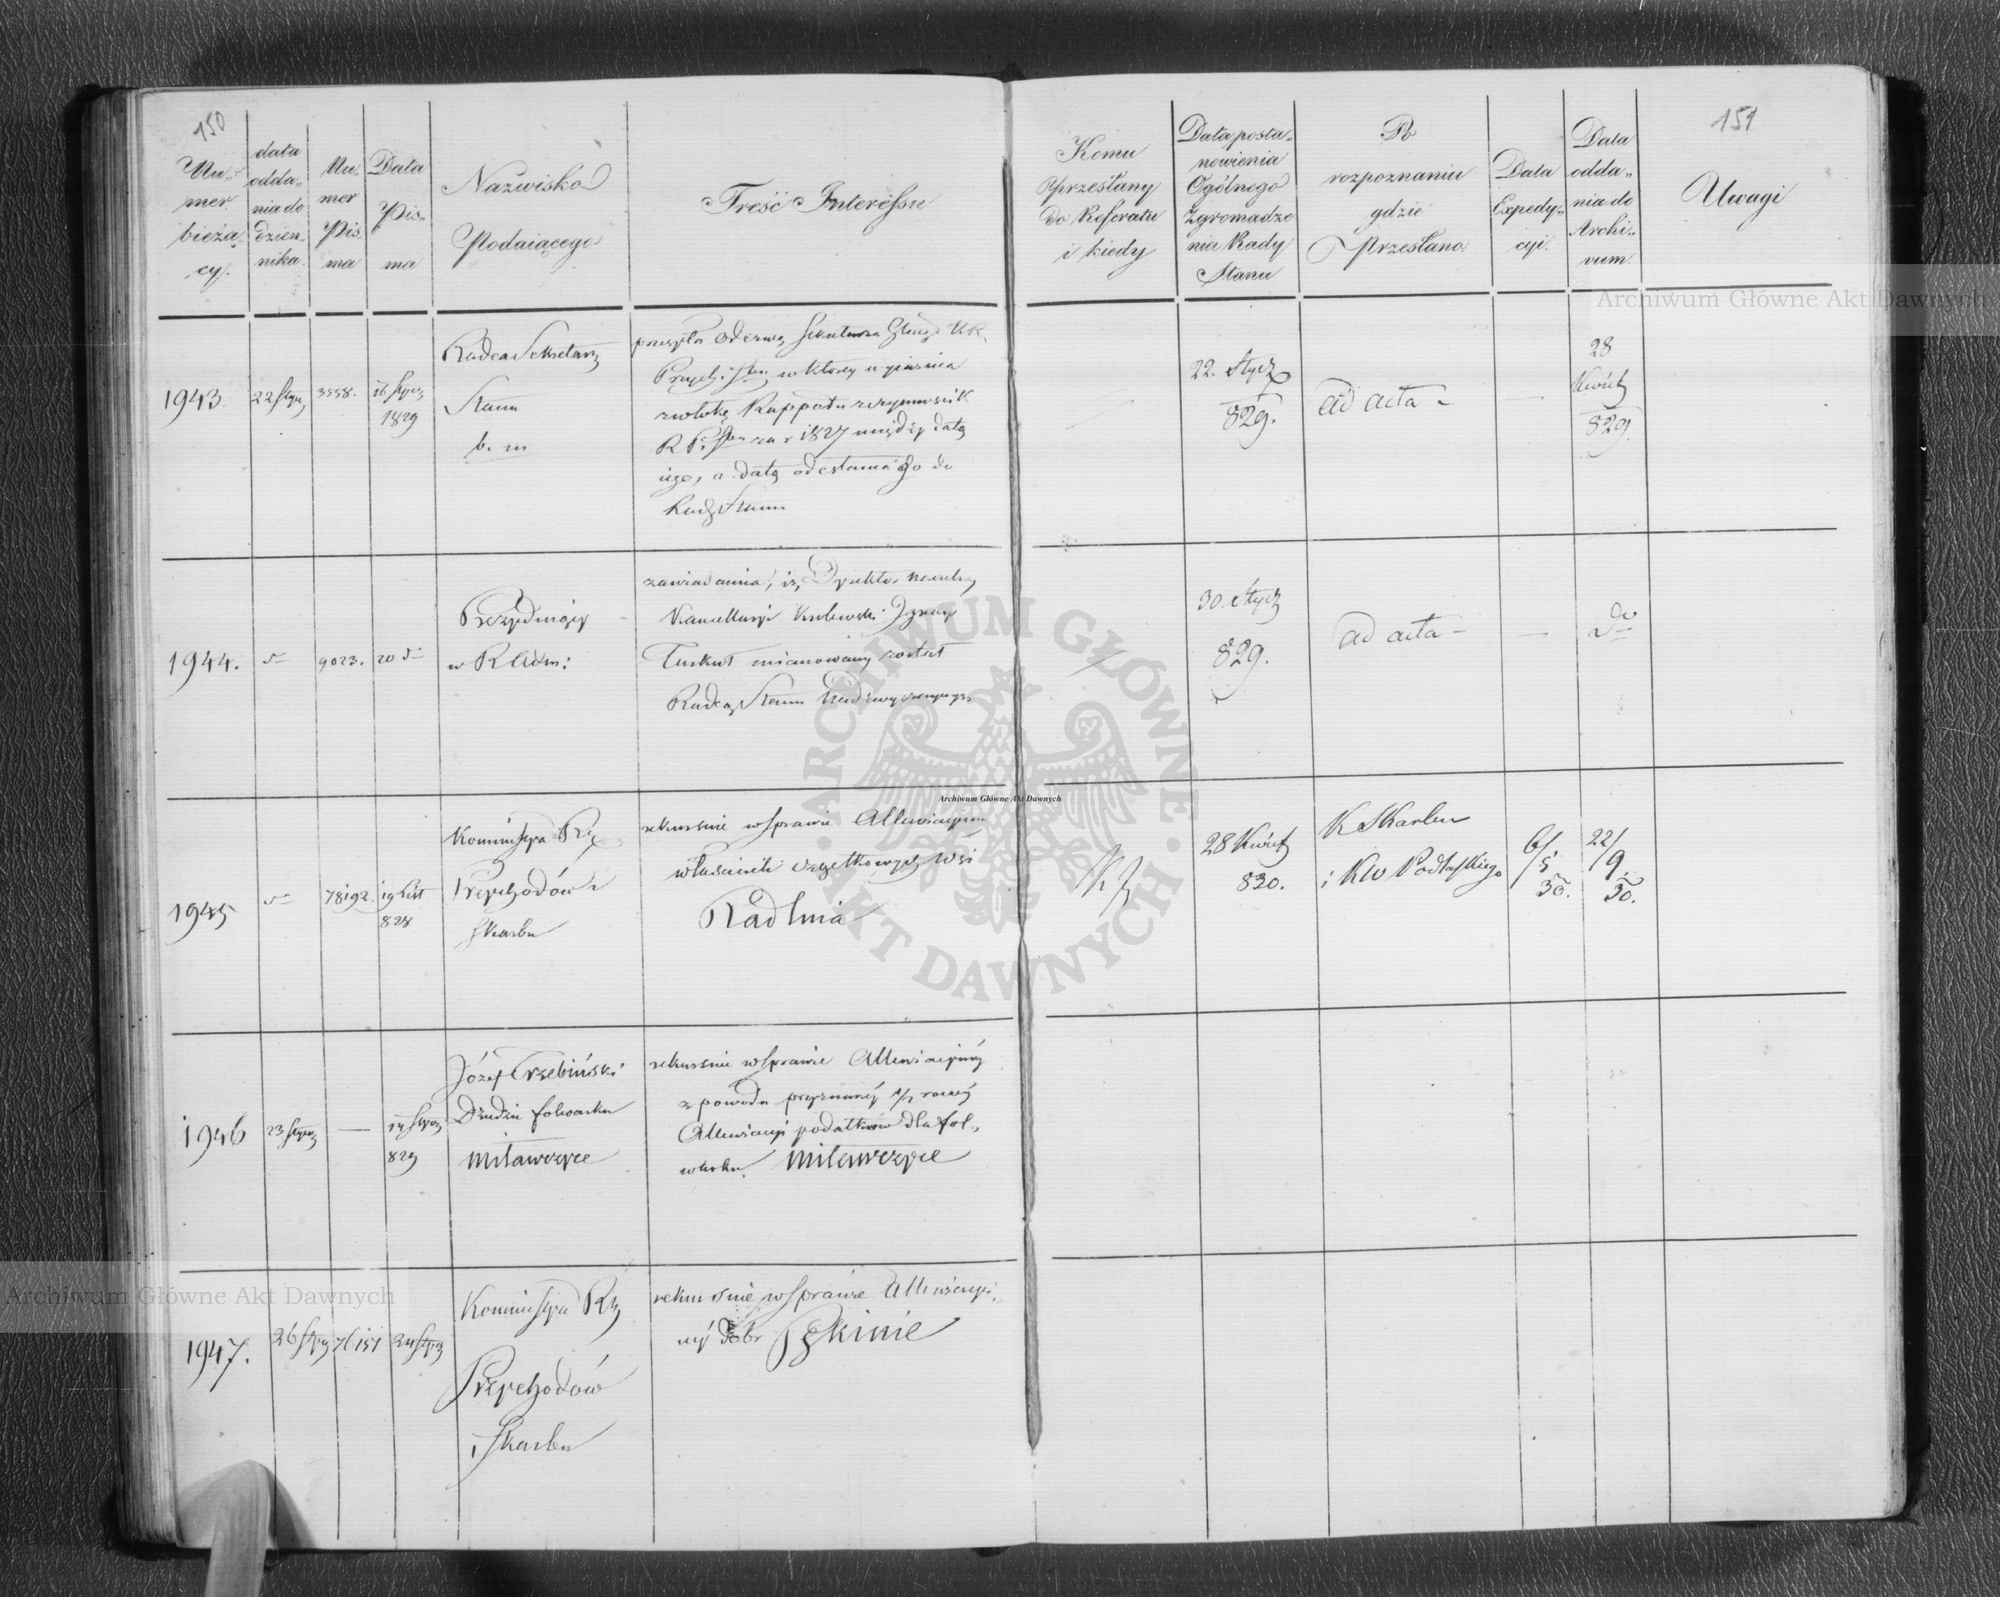 150
Nu-
mer
bieżą
cy.
data
odda-
nia do
dzien-
nika.
Nu-
mer
Pis-
ma
Data
Pis-
ma
Nazwisko
Podaiącego
Treść Interessu
Komu
przesłany
do Referatu
i kiedy
Data posta-
nowienia
Ogólnego
Zgromadze
nia Rady
Stanu
Po
rozpoznaniu
gdzie
Przesłano
Data
Expedy-
cyi.
Data
odda-
nia do
Archi-
vum.
151
Uwagi
1943
22 Stycz
3558.
16 Stycz
1829
Radca Sekretarz
Stanu
b. m
przesyła odezwę
w którey wyiaśnia
zwłokę Rapportu
za r 1827 między datą
iego, a datą odesłania go do
Rady Stanu
22. Stycz
829.
ad acta -
28
Kwiet
829.
1944.
9023.
20 d
Prezyduiący
w R Adm:
zawiadamia, iż Dyrektor
Kancellaryi Ignacy
Turkuł mianowany został
Radcą Stanu Nadzwyczaynym
30. Stycz
829.
ad acta -
do
1945
78192.
19 List
828
Kommissya Rz
Przychodów
Skarbu
rekursuie w sprawie Allewiacyiney
właścicieli cząstkowych wsi
Radlnia
28 Kwiet
830.
K Skarbu
i KW Podlaskiego
6/5
30.
22/9
30.
1946
23 Stycz
14 Stycz
829
Józef Trzebiński
Dziedzic folwarku
Miławczyce
rekursuie w sprawie Allewiacyiney
z powodu przyznaney 1/2 roczney
Allewiacyi podatków dla fol-
warku Miławczyce
1947.
26 Stycz
76151
24 Stycz
Kommissya Rz
Przychodów
i Skarbu
rekursuie w sprawie Allewiacyi-
ney dobr Pękinie
Archiwum Główne Akt Dawnych
ARCHIWUM GŁÓWNE
AKT DAWNYCH
Archiwum Główne Akt Dawnych
Archiwum Główne Akt Dawnych